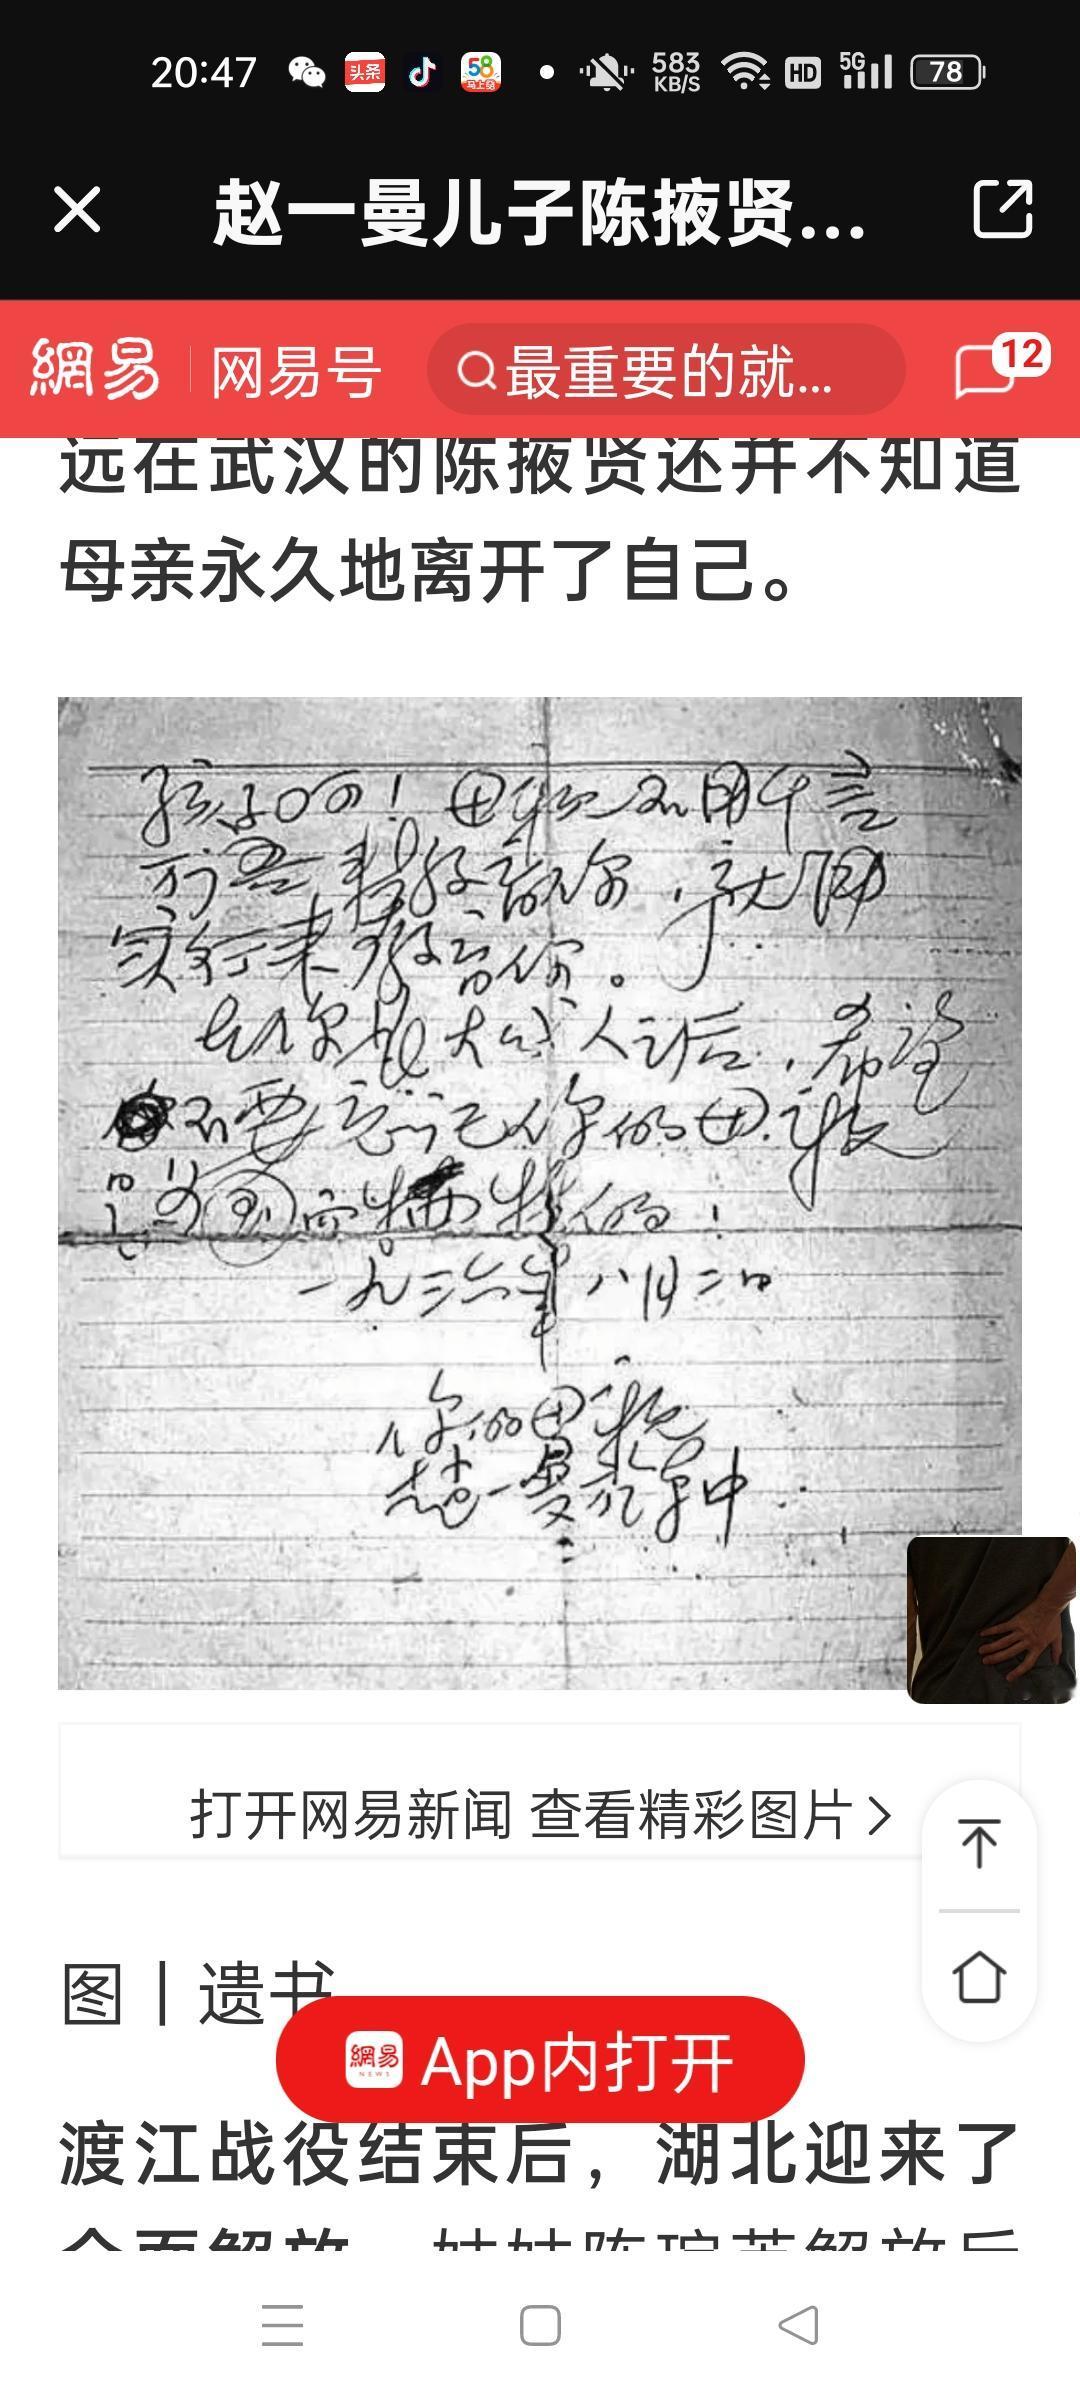 20:47
头条
58
马上办
583
KB/S
HD
5G
78
赵一曼儿子陈掖贤...
網易
网易号
最重要的就...
12
远在武汉的陈掖贤还并不知道
母亲永久地离开了自己。
孩子啊！母亲不用千言
万语来教育你，就用
实行来教育你。
在你长大成人之后，希望
不要忘记你的母亲
是为国而牺牲的！
一九三六年八月二日
你的母亲
赵一曼于车中
打开网易新闻 查看精彩图片
图｜遗书
網易
NEWS
App内打开
渡江战役结束后，湖北迎来了
全面解放